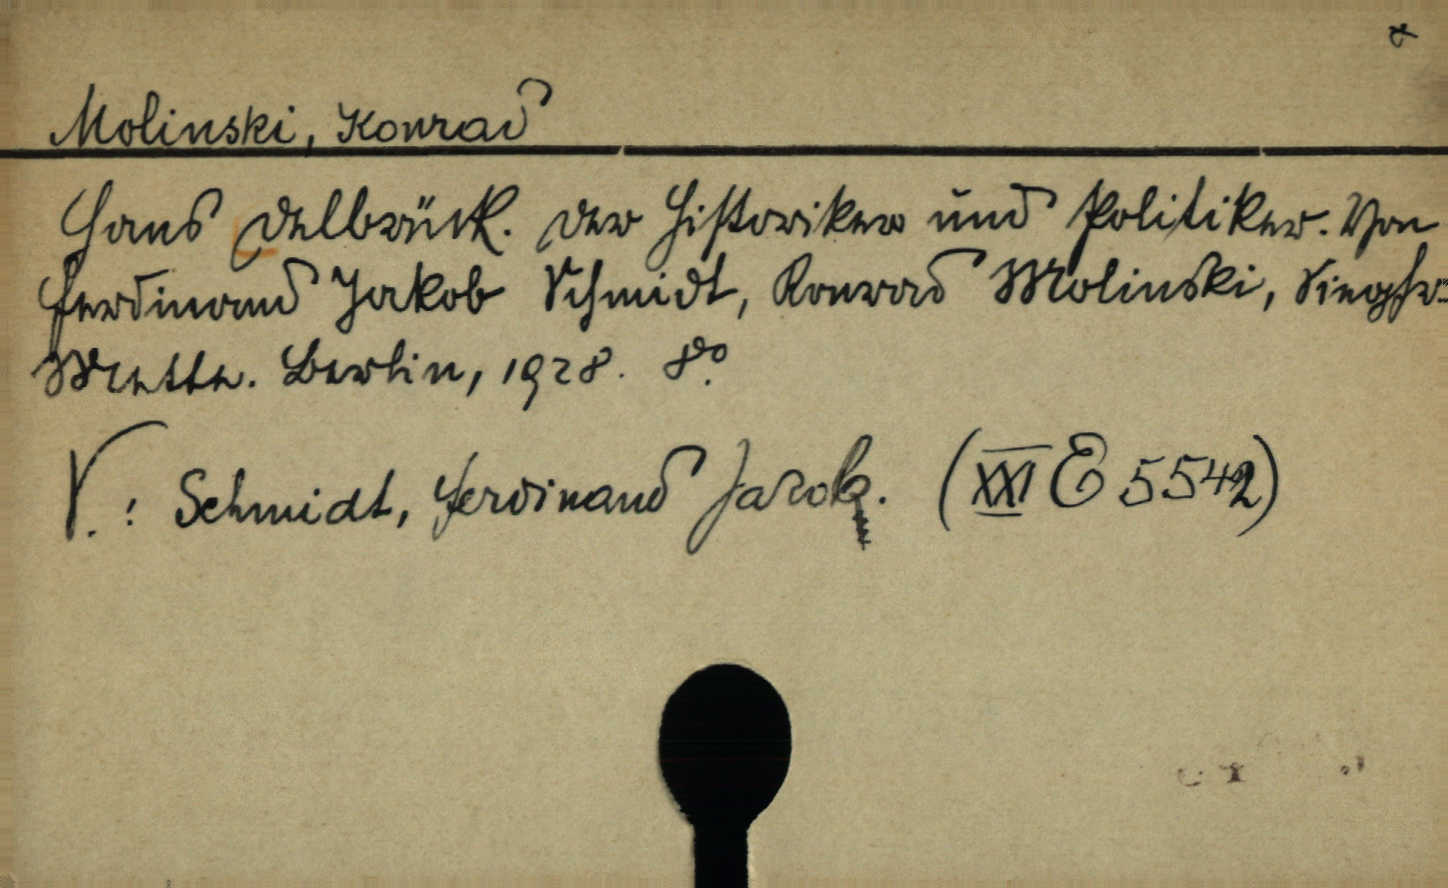 Molinski, Konrad
Hans Delbrück. Der Historiker und Politiker. Von
Ferdinand Jakob Schmidt, Konrad Molinski, Siegfr.
Mette. Berlin, 1928. 8o.
V.: Schmidt, Ferdinand Jacob. (XXI E 5542)